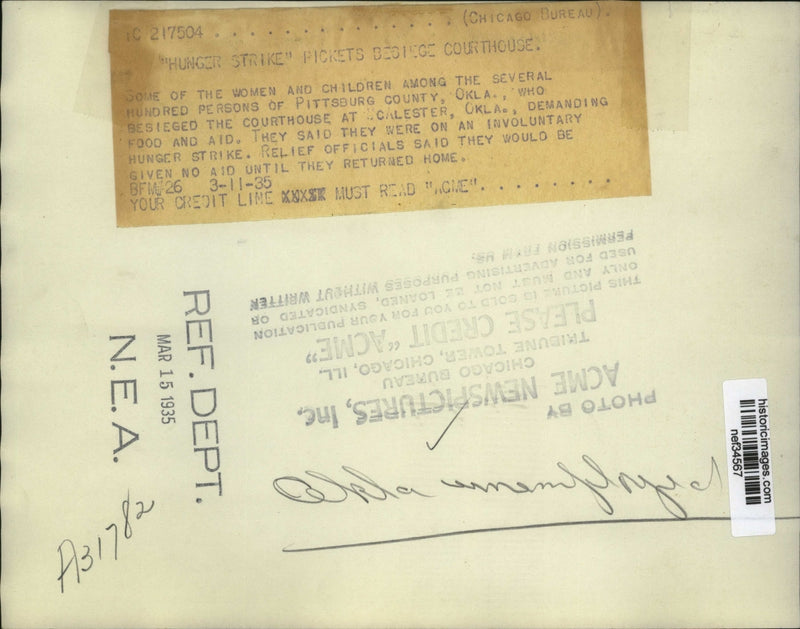 1C 217504 . . . . . . . . . . . . . . (CHICAGO BUREAU).
"HUNGER STRIKE" PICKETS BESIEGE COURTHOUSE.
SOME OF THE WOMEN AND CHILDREN AMONG THE SEVERAL
HUNDRED PERSONS OF PITTSBURG COUNTY, OKLA., WHO
BESIEGED THE COURTHOUSE AT MCALESTER, OKLA., DEMANDING
FOOD AND AID. THEY SAID THEY WERE ON AN INVOLUNTARY
HUNGER STRIKE. RELIEF OFFICIALS SAID THEY WOULD BE
GIVEN NO AID UNTIL THEY RETURNED HOME.
BFM#26 3-11-35
YOUR CREDIT LINE MUST READ "ACME". . . . . . . . .
PHOTO BY
ACME NEWSPICTURES, Inc.
CHICAGO BUREAU
TRIBUNE TOWER, CHICAGO, ILL.
PLEASE CREDIT "ACME"
THIS PICTURE IS SOLD TO YOU FOR YOUR PUBLICATION
ONLY AND MUST NOT BE LOANED, SYNDICATED OR
USED FOR ADVERTISING PURPOSES WITHOUT WRITTEN
PERMISSION FROM US.
REF. DEPT.
MAR 15 1935
N.E.A.
Okla unemployed
A31782
historicimages.com
nef34567